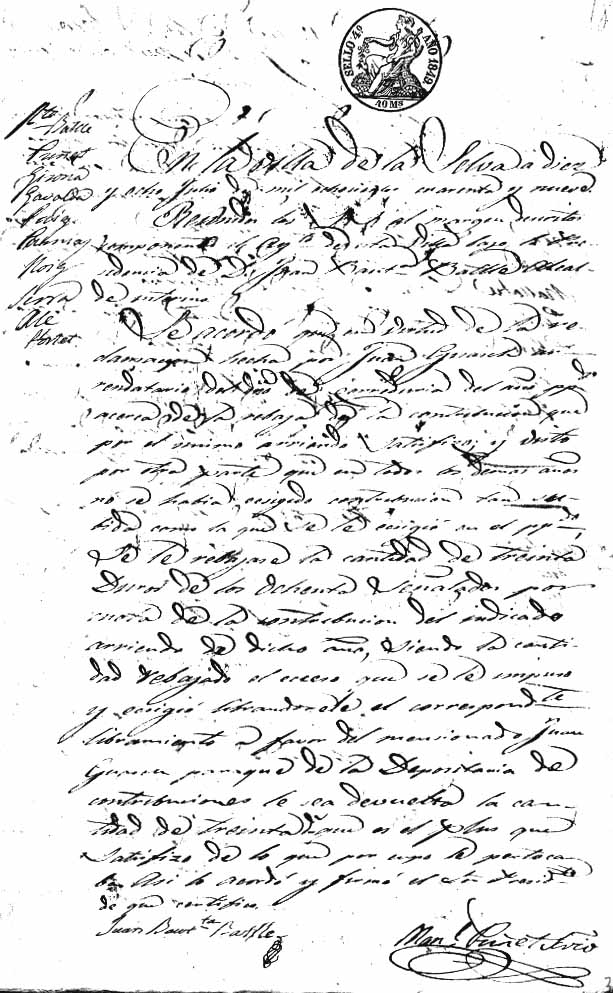 SELLO 4º AÑO 1849
40 Ms
Batlle
Puñet
Girona
Puig
Roig
Serra
En la villa de la Selva a diez
y ocho Julio de mil ochocientos cuarenta y nueve.
Reunidos los S.S. al margen escritos
componentes el Ay.to de esta villa bajo la Pre-
sidencia de D. Juan Baut.ta Batlle Alcal-
de interino
Se acordó que en virtud de la re-
clamacion hecha por Juan
rendatario del año pp.do
acerca de la rebaja de la contribucion que
por el mismo arriendo satisfizo; y visto
por otra parte que en todos los demas años
no se habia exigido contribucion tan su-
bida como la que se le exigió en el pp.do,
Se le rebajase la cantidad de treinta
Duros de los Ochenta Señalados por
cuota de la contribucion del indicado
arriendo de dicho año, siendo la canti-
dad rebajada el exceso que se le impuso
y exigió librandosele el correspond.te
libramiento a favor del mencionado Juan
paraque de la Depositaria de
contribuciones le sea devuelta la can-
tidad de treinta d.s que es el plus que
Satisfizo de lo que por cupo le pertoca-
ba. Asi lo acordó y firmó el Sor. Presid.te
de que certifico.
Juan Baut.ta Batlle
Man.l Puñet Srio